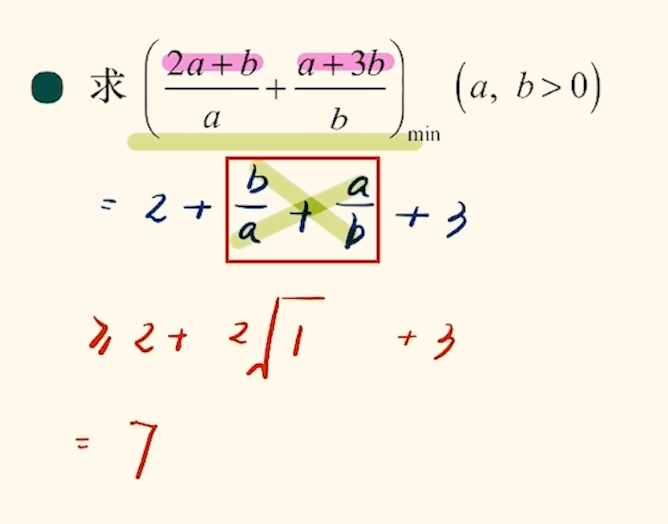 求 $\left(\frac{2a+b}{a}+\frac{a+3b}{b}\right)_{\min}$ $(a, b>0)$
$= 2+\frac{b}{a}+\frac{a}{b}+3$
$\geqslant 2+2\sqrt{1}+3$
$= 7$